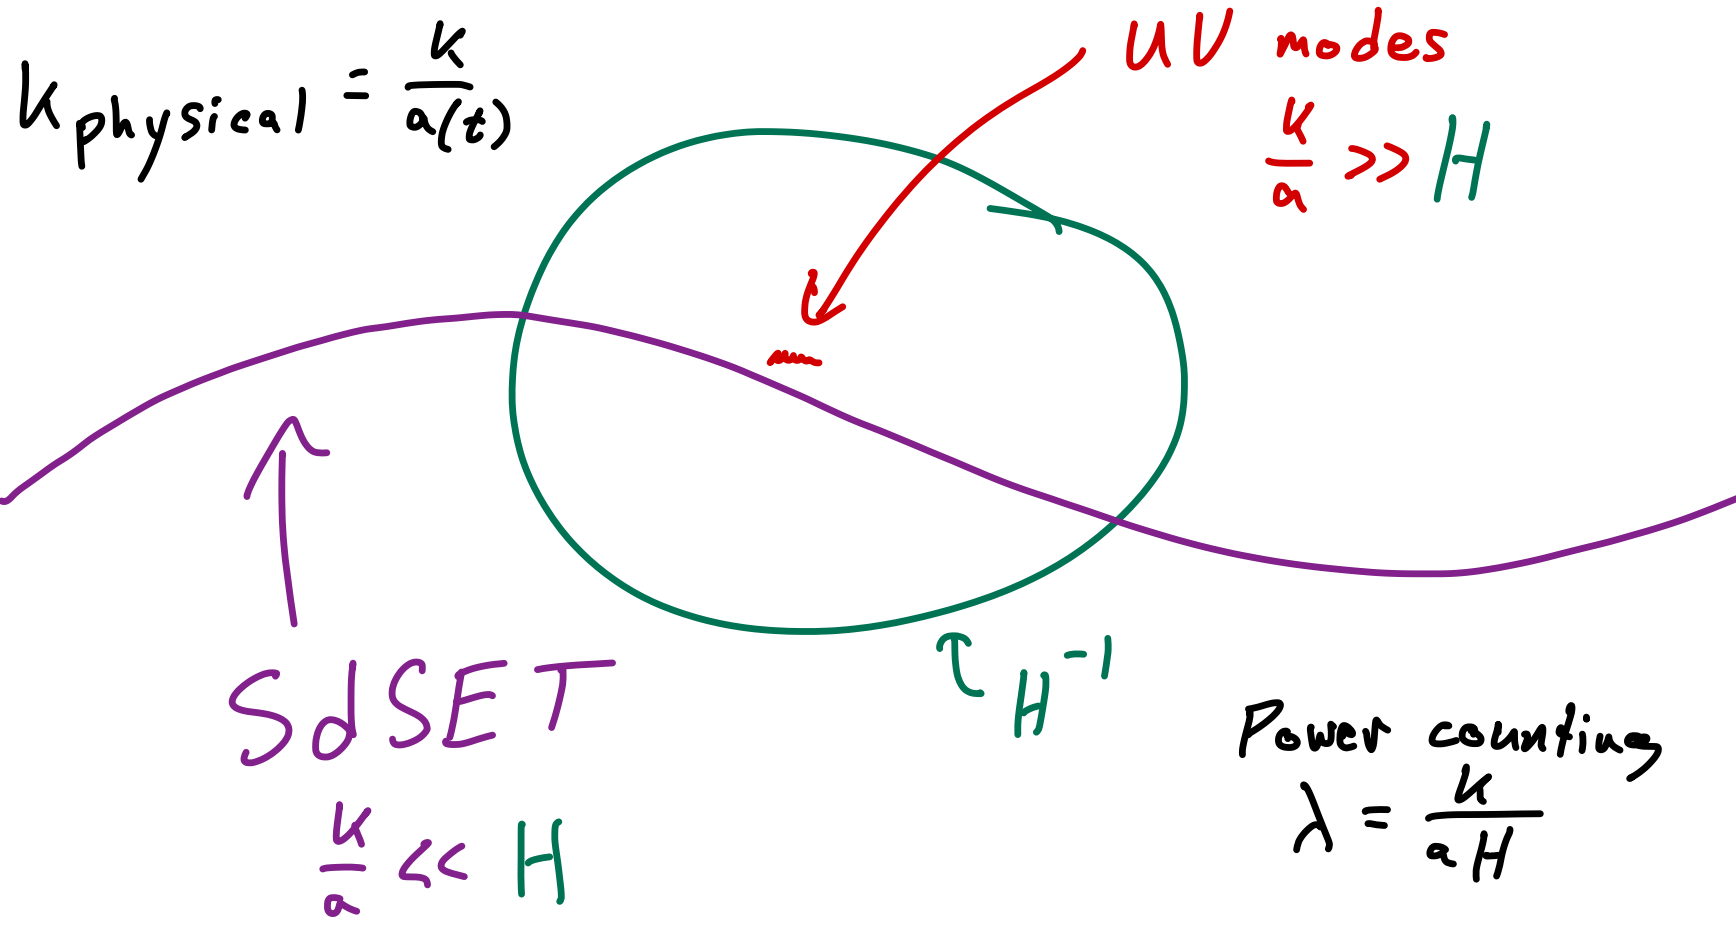 k_physical = k/a(t)
UV modes
k/a >> H
H^-1
SdSET
k/a << H
Power counting
λ = k/aH